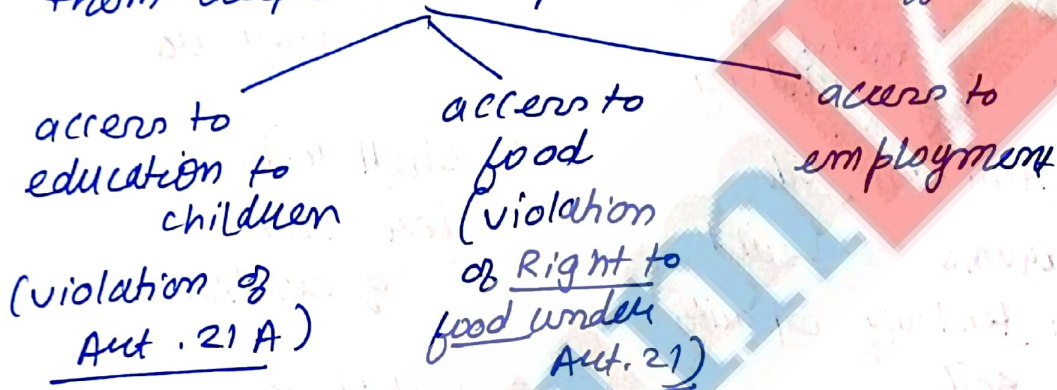 from
access to
education to
children
(violation of
Art. 21A)
access to
food
(violation
of Right to
food under
Art. 21)
access to
employment